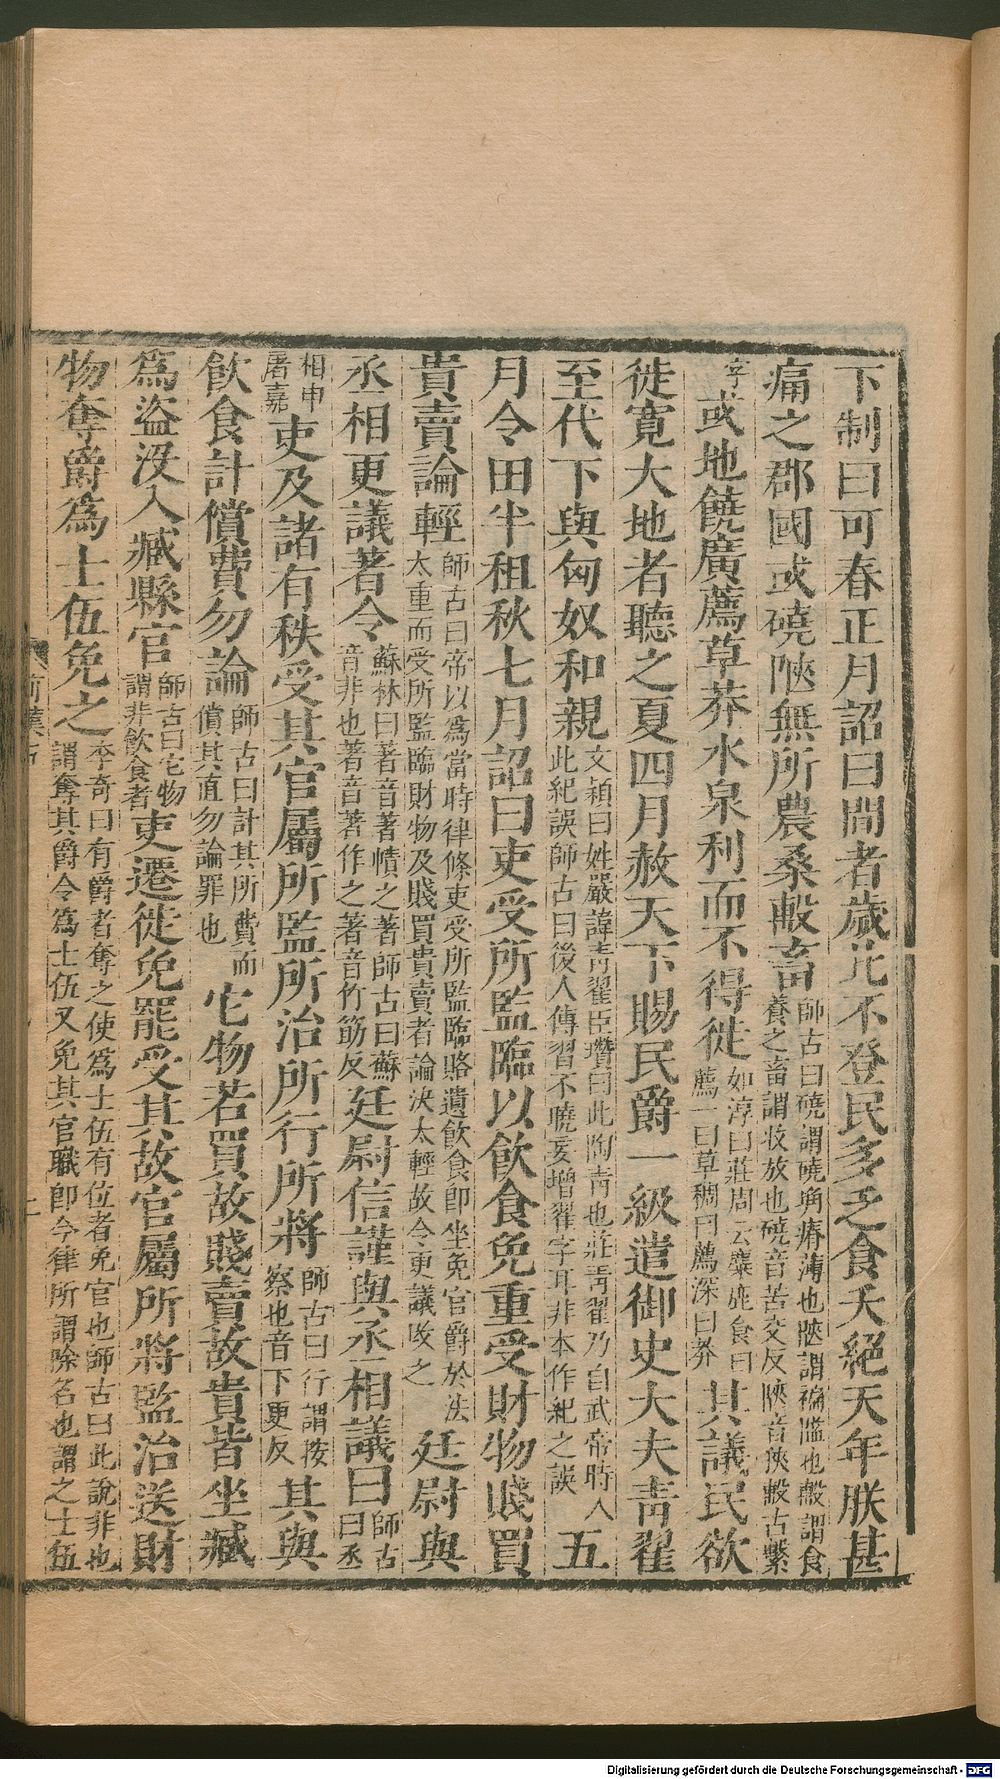 下制曰可春正月詔曰間者歲比不登民多乏食夭絕天年朕甚
痛之郡國或磽陿無所農桑毄畜師古曰磽謂磽埆瘠薄也陿謂褊隘也毄謂食養之畜謂牧放也磽音苦交反陿音狹毄古繫
字或地饒廣薦草莽水泉利而不得徙如淳曰莊周云麋鹿食曰薦一曰草稠曰薦深曰莽其議民欲
徙寬大地者聽之夏四月赦天下賜民爵一級遣御史大夫青翟
至代下與匈奴和親文穎曰姓嚴諱青翟臣瓚曰此陶青也莊青翟乃自武帝時人此紀誤師古曰後人傳習不曉妄增翟字耳非本作紀之誤五
月令田半租秋七月詔曰吏受所監臨以飲食免重受財物賤買
貴賣論輕師古曰帝以爲當時律條吏受所監臨賂遺飲食即坐免官爵於法太重而受所監臨財物及賤買貴賣者論決太輕故令更議改之廷尉與
丞相更議著令蘇林曰著音著幘之著師古曰蘇音非也著音著作之著音竹筯反廷尉信謹與丞相議曰師古曰丞
相申屠嘉吏及諸有秩受其官屬所監所治所行所將師古曰行謂按察也音下更反其與
飲食計償費勿論師古曰計其所費而償其直勿論罪也它物若買故賤賣故貴皆坐臧
爲盜沒入臧縣官師古曰它物謂非飲食者吏遷徙免罷受其故官屬所將監治送財
物奪爵爲士伍免之李奇曰有爵者奪之使爲士伍有位者免官也師古曰此說非也謂奪其爵令爲士伍又免其官職即今律所謂除名也謂之士伍
Digitalisierung gefördert durch die Deutsche Forschungsgemeinschaft - DFG